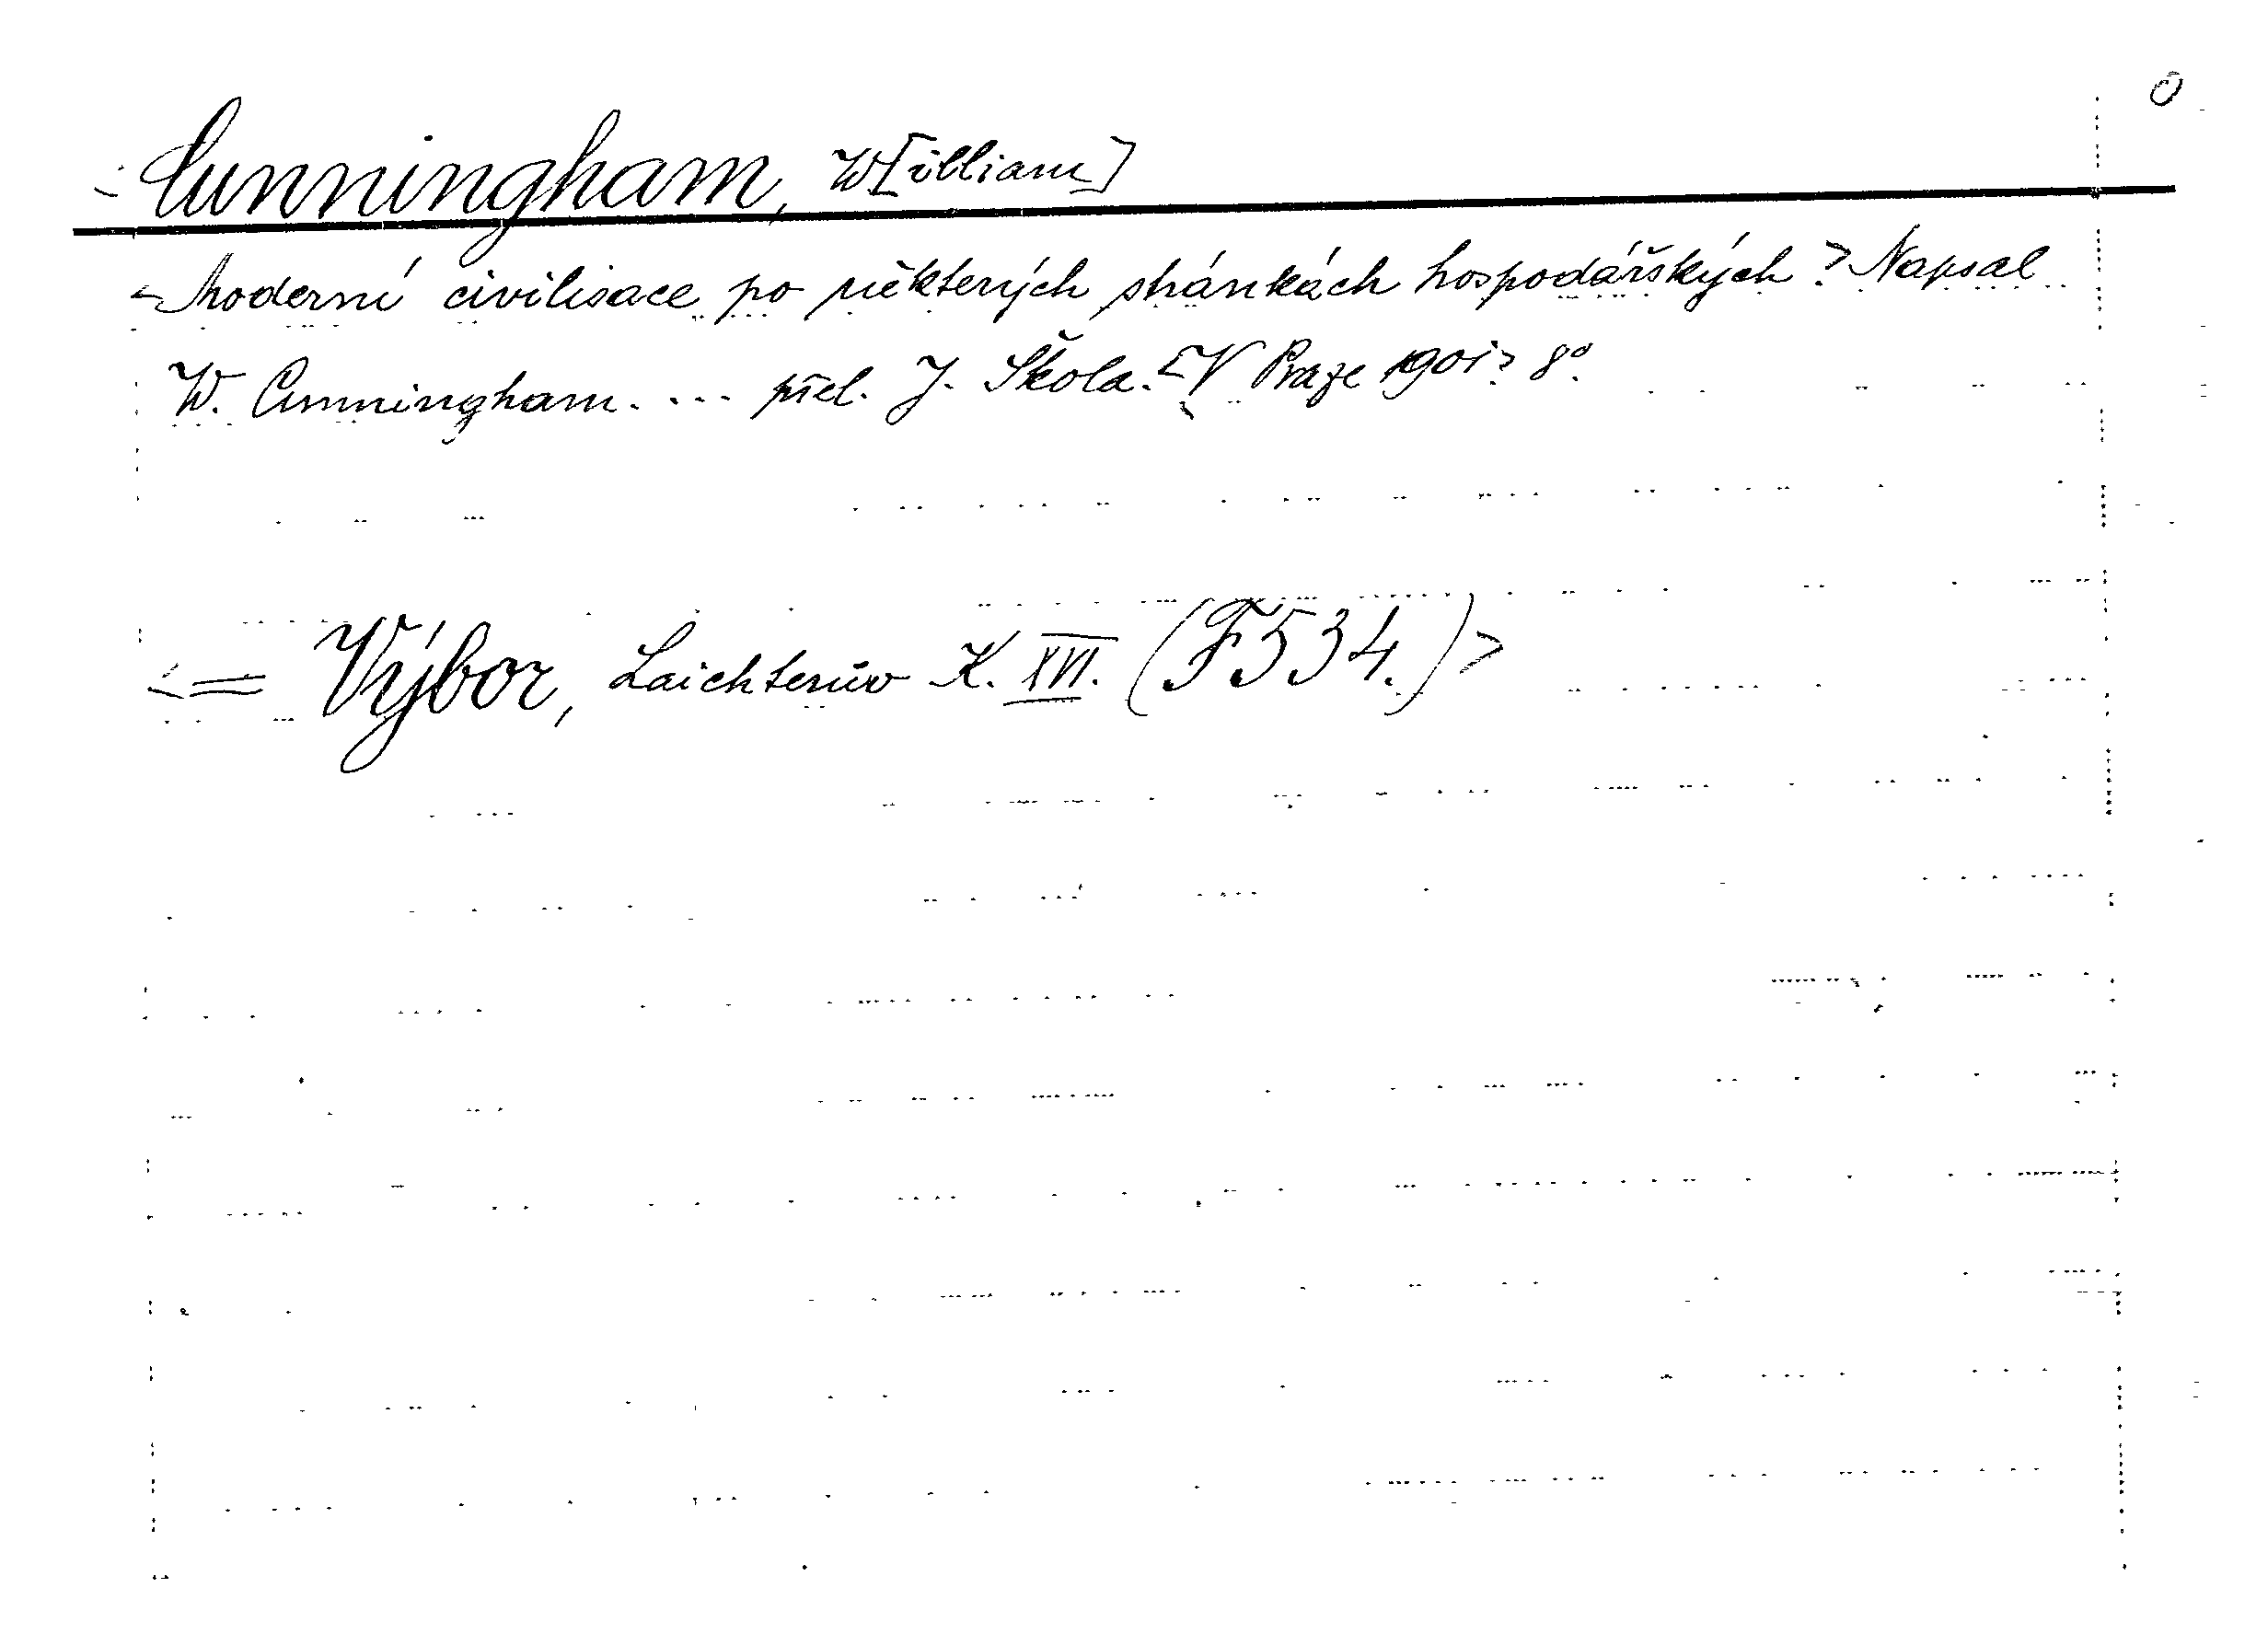 Cunningham, W[illiam]
<Moderní civilisace po některých stránkách hospodářských> Napsal
W. Cunningham. ... přel. J. Škola. <V Praze 1901> 8°.
<= Výbor, Laichterův K. XVI. (F534.)>